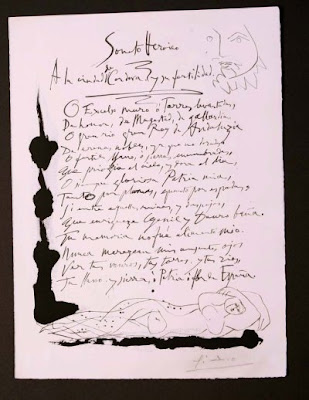 Soneto Heroico
A la ciudad de Cordova y su fertilidad.
O Excelso muro, o Torres levantadas,
De honor, de Magestad, de gallardia,
O gran rio, gran Rey de Andaluzia
De arenas nobles, ya que no doradas
O fertil llano, o sierras encumbradas,
Que privilegia el cielo, y dora el dia,
O siempre gloriosa Patria mia,
Tanto por plumas, quanto por espadas,
Si entre aquellas ruinas, y despojos,
Que enriqueze Genil y Dauro baña,
Tu memoria no fue alimento mio.
Nunca merezcan mis ausentes ojos
Ver tus muros, tus torres, y tu rio,
Tu llano y sierra, o Patria, o flor de España.
Picasso